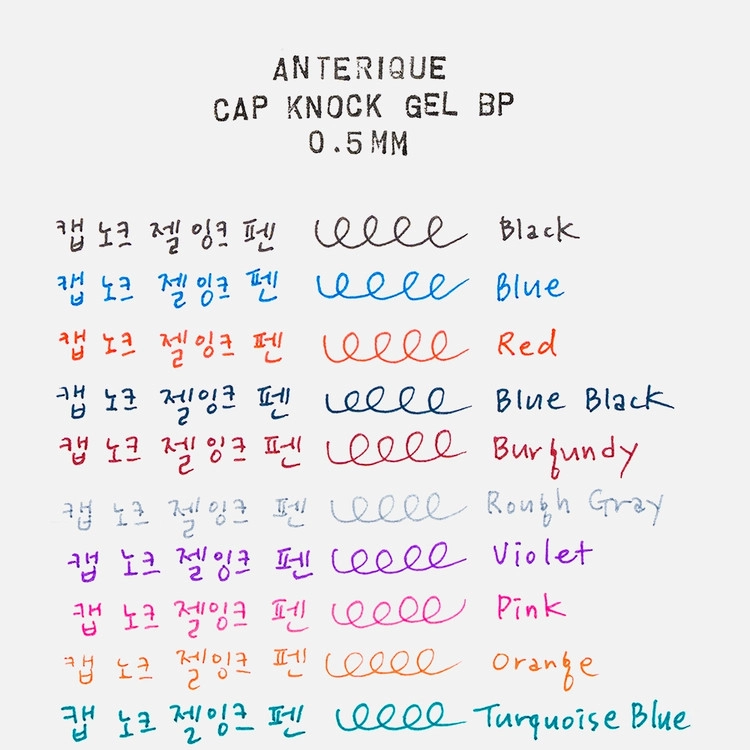 ANTERIQUE
CAP KNOCK GEL BP
0.5MM
캡 노크 젤잉크 펜 Black
캡 노크 젤잉크 펜 Blue
캡 노크 젤잉크 펜 Red
캡 노크 젤잉크 펜 Blue Black
캡 노크 젤잉크 펜 Burgundy
캡 노크 젤잉크 펜 Rough Gray
캡 노크 젤잉크 펜 Violet
캡 노크 젤잉크 펜 Pink
캡 노크 젤잉크 펜 Orange
캡 노크 젤잉크 펜 Turquoise Blue